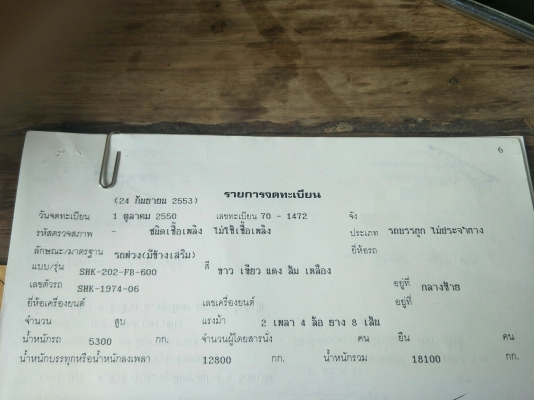 6
รายการจดทะเบียน
(24 กันยายน 2553)
วันจดทะเบียน 1 ตุลาคม 2550 เลขทะเบียน 70 - 1472 จัง
รหัสตรวจสภาพ - ชนิดเชื้อเพลิง ไม่ใช้เชื้อเพลิง ประเภท รถบรรทุก ไม่ประจำทาง
ลักษณะ/มาตรฐาน รถพ่วง(มีข้างเสริม) ยี่ห้อรถ
แบบ/รุ่น SHK-202-FB-600 สี ขาว เขียว แดง ส้ม เหลือง
เลขตัวรถ SHK-1974-06 อยู่ที่ กลางซ้าย
ยี่ห้อเครื่องยนต์ เลขเครื่องยนต์ อยู่ที่
จำนวน สูบ แรงม้า 2 เพลา 4 ล้อ ยาง 8 เส้น
น้ำหนักรถ 5300 กก. จำนวนผู้โดยสารนั่ง คน ยืน คน
น้ำหนักบรรทุกหรือน้ำหนักลงเพลา 12800 กก. น้ำหนักรวม 18100 กก.